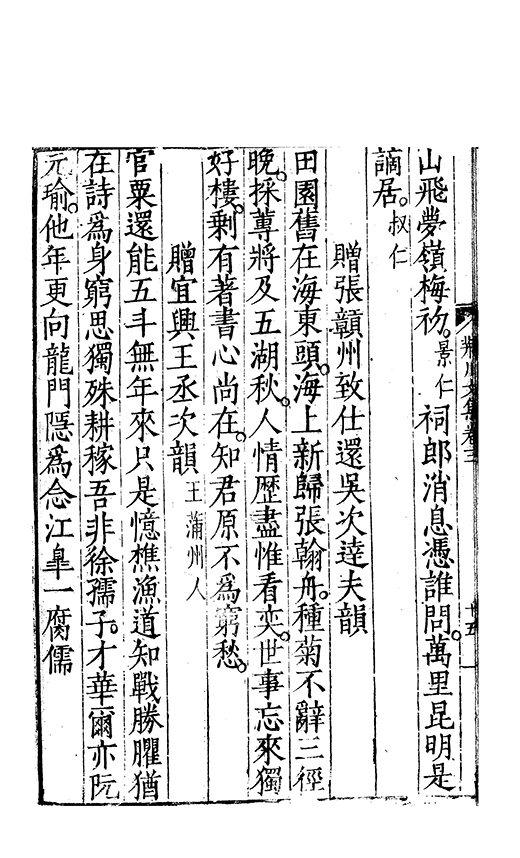 荆川文集卷三 廿五
山飛夢嶺梅初。景仁 祠郎消息憑誰問。萬里昆明是
謫居。叔仁
贈張贑州致仕還吳次逹夫韻
田園舊在海東頭。海上新歸張翰舟。種菊不辭三徑
晚。採蓴將及五湖秋。人情歴盡惟看奕。世事忘來獨
好樓。剩有著書心尚在。知君原不爲窮愁。
贈宜興王丞次韻 王蒲州人
官粟還能五斗無年來只是憶樵漁道知戰勝臞猶
在詩爲身窮思獨殊耕稼吾非徐孺子。才華爾亦阮
元瑜。他年更向龍門隱爲念江臯一腐儒